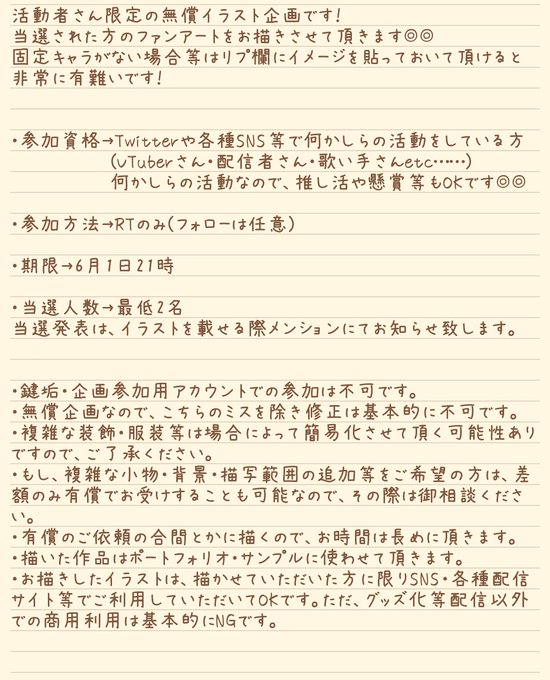 活動者さん限定の無償イラスト企画です!
当選された方のファンアートをお描きさせて頂きます◎◎
固定キャラがない場合等はリプ欄にイメージを貼っておいて頂けると
非常に有難いです!
・参加資格→Twitterや各種SNS等で何かしらの活動をしている方
(VTuberさん・配信者さん・歌い手さんetc……)
何かしらの活動なので、推し活や懸賞等もOKです◎◎
・参加方法→RTのみ(フォローは任意)
・期限→6月1日21時
・当選人数→最低2名
当選発表は、イラストを載せる際メンションにてお知らせ致します。
・鍵垢・企画参加用アカウントでの参加は不可です。
・無償企画なので、こちらのミスを除き修正は基本的に不可です。
・複雑な装飾・服装等は場合によって簡易化させて頂く可能性あり
ですので、ご了承ください。
・もし、複雑な小物・背景・描写範囲の追加等をご希望の方は、差
額のみ有償でお受けすることも可能なので、その際は御相談くださ
い。
・有償のご依頼の合間とかに描くので、お時間は長めに頂きます。
・描いた作品はポートフォリオ・サンプルに使わせて頂きます。
・お描きしたイラストは、描かせていただいた方に限りSNS・各種配信
サイト等でご利用していただいてOKです。ただ、グッズ化等配信以外
での商用利用は基本的にNGです。